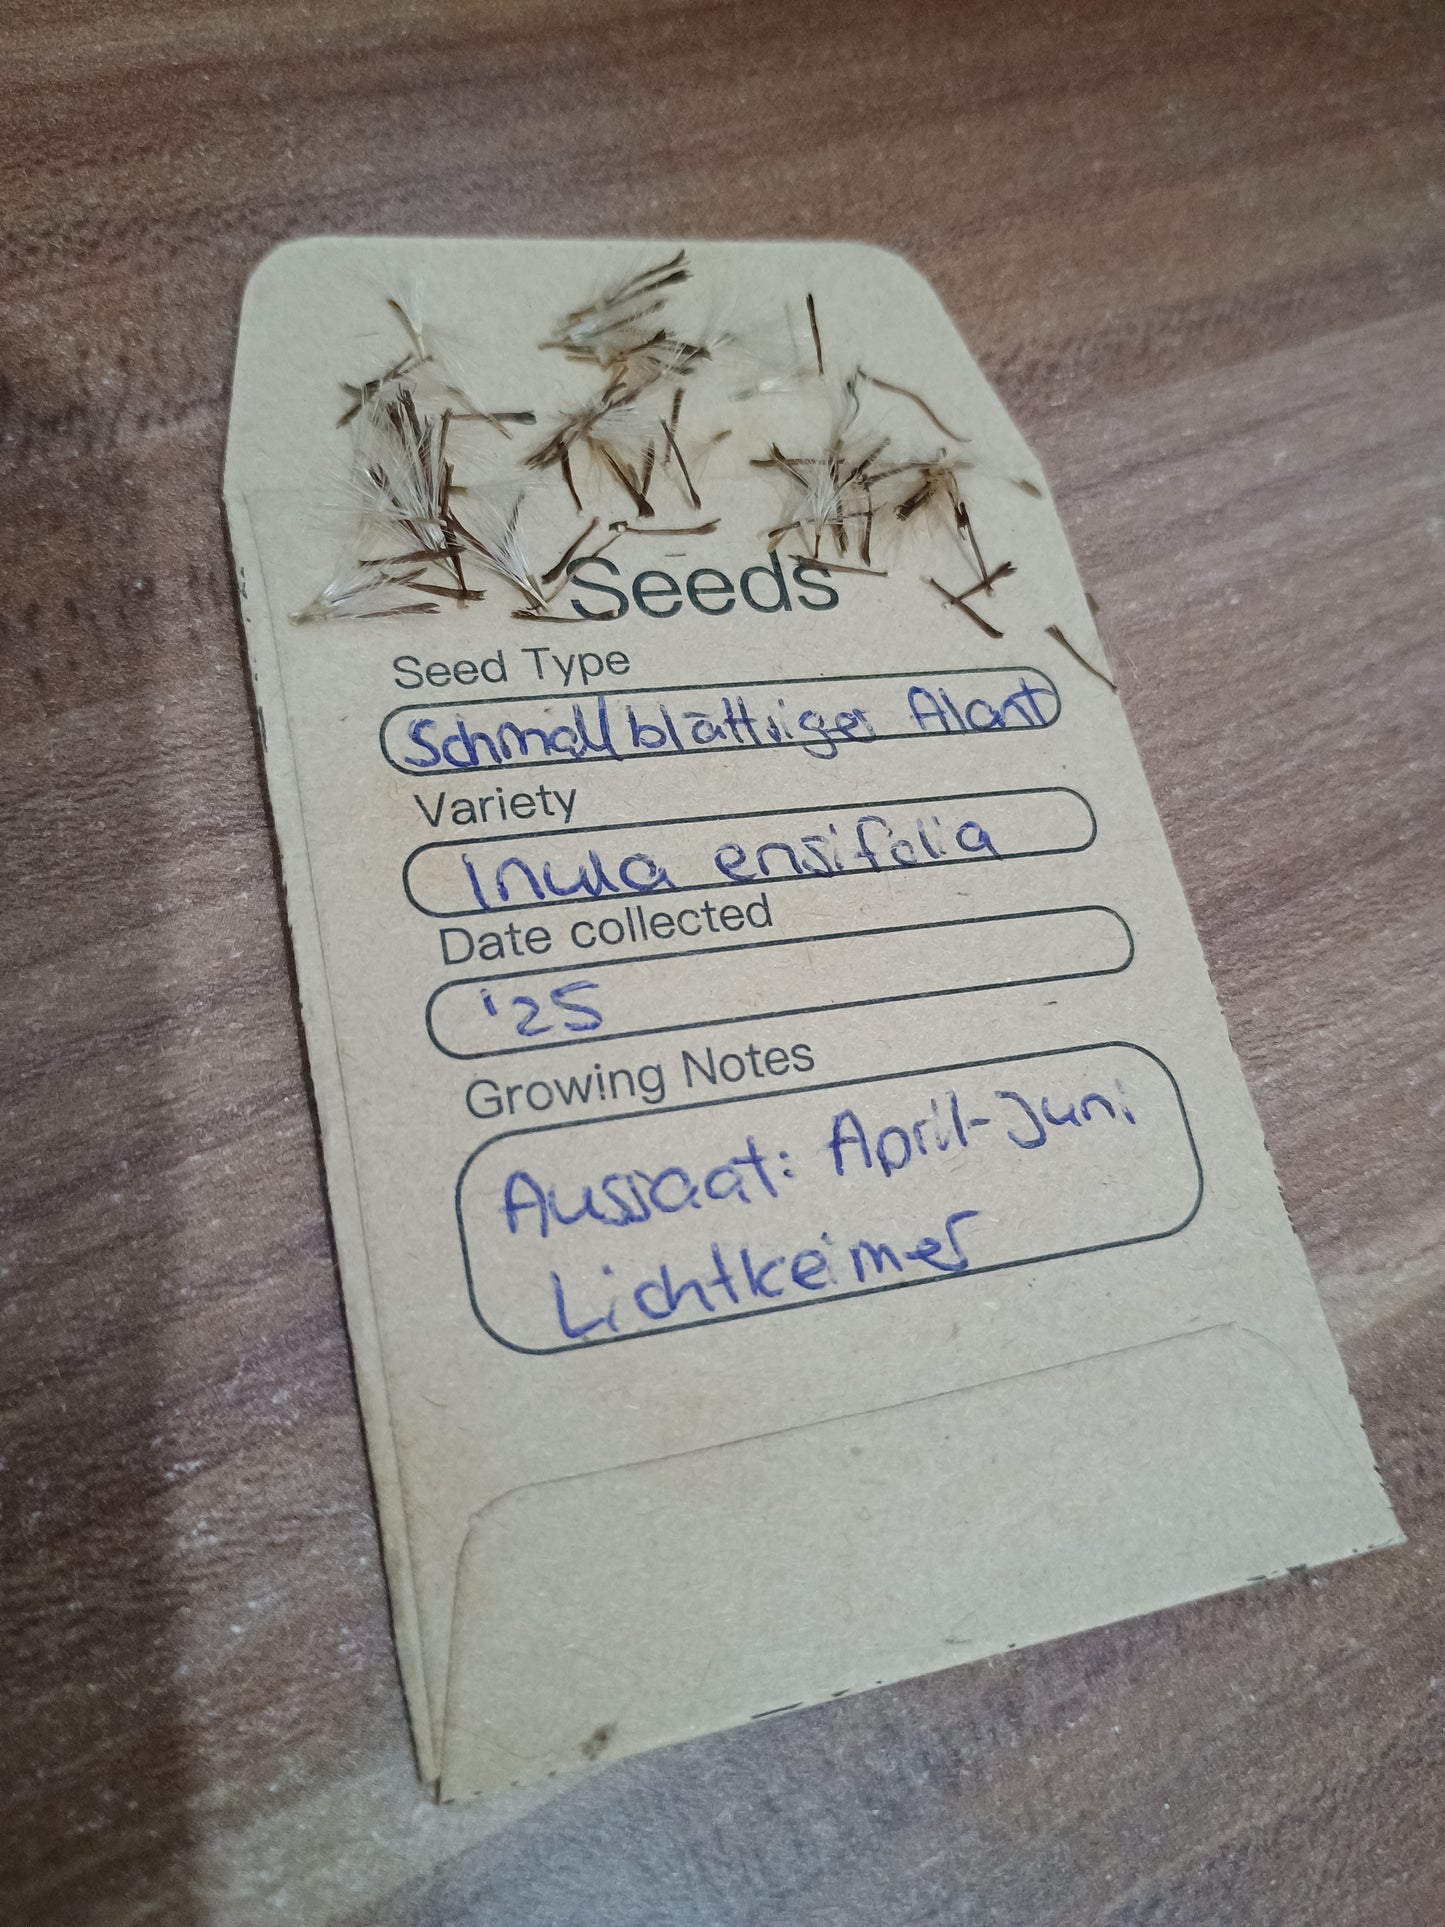 Seeds
Seed Type
Schmallblättriger Alant
Variety
Inula ensifolia
Date collected
'25
Growing Notes
Aussaat: April-Juni
Lichtkeimer